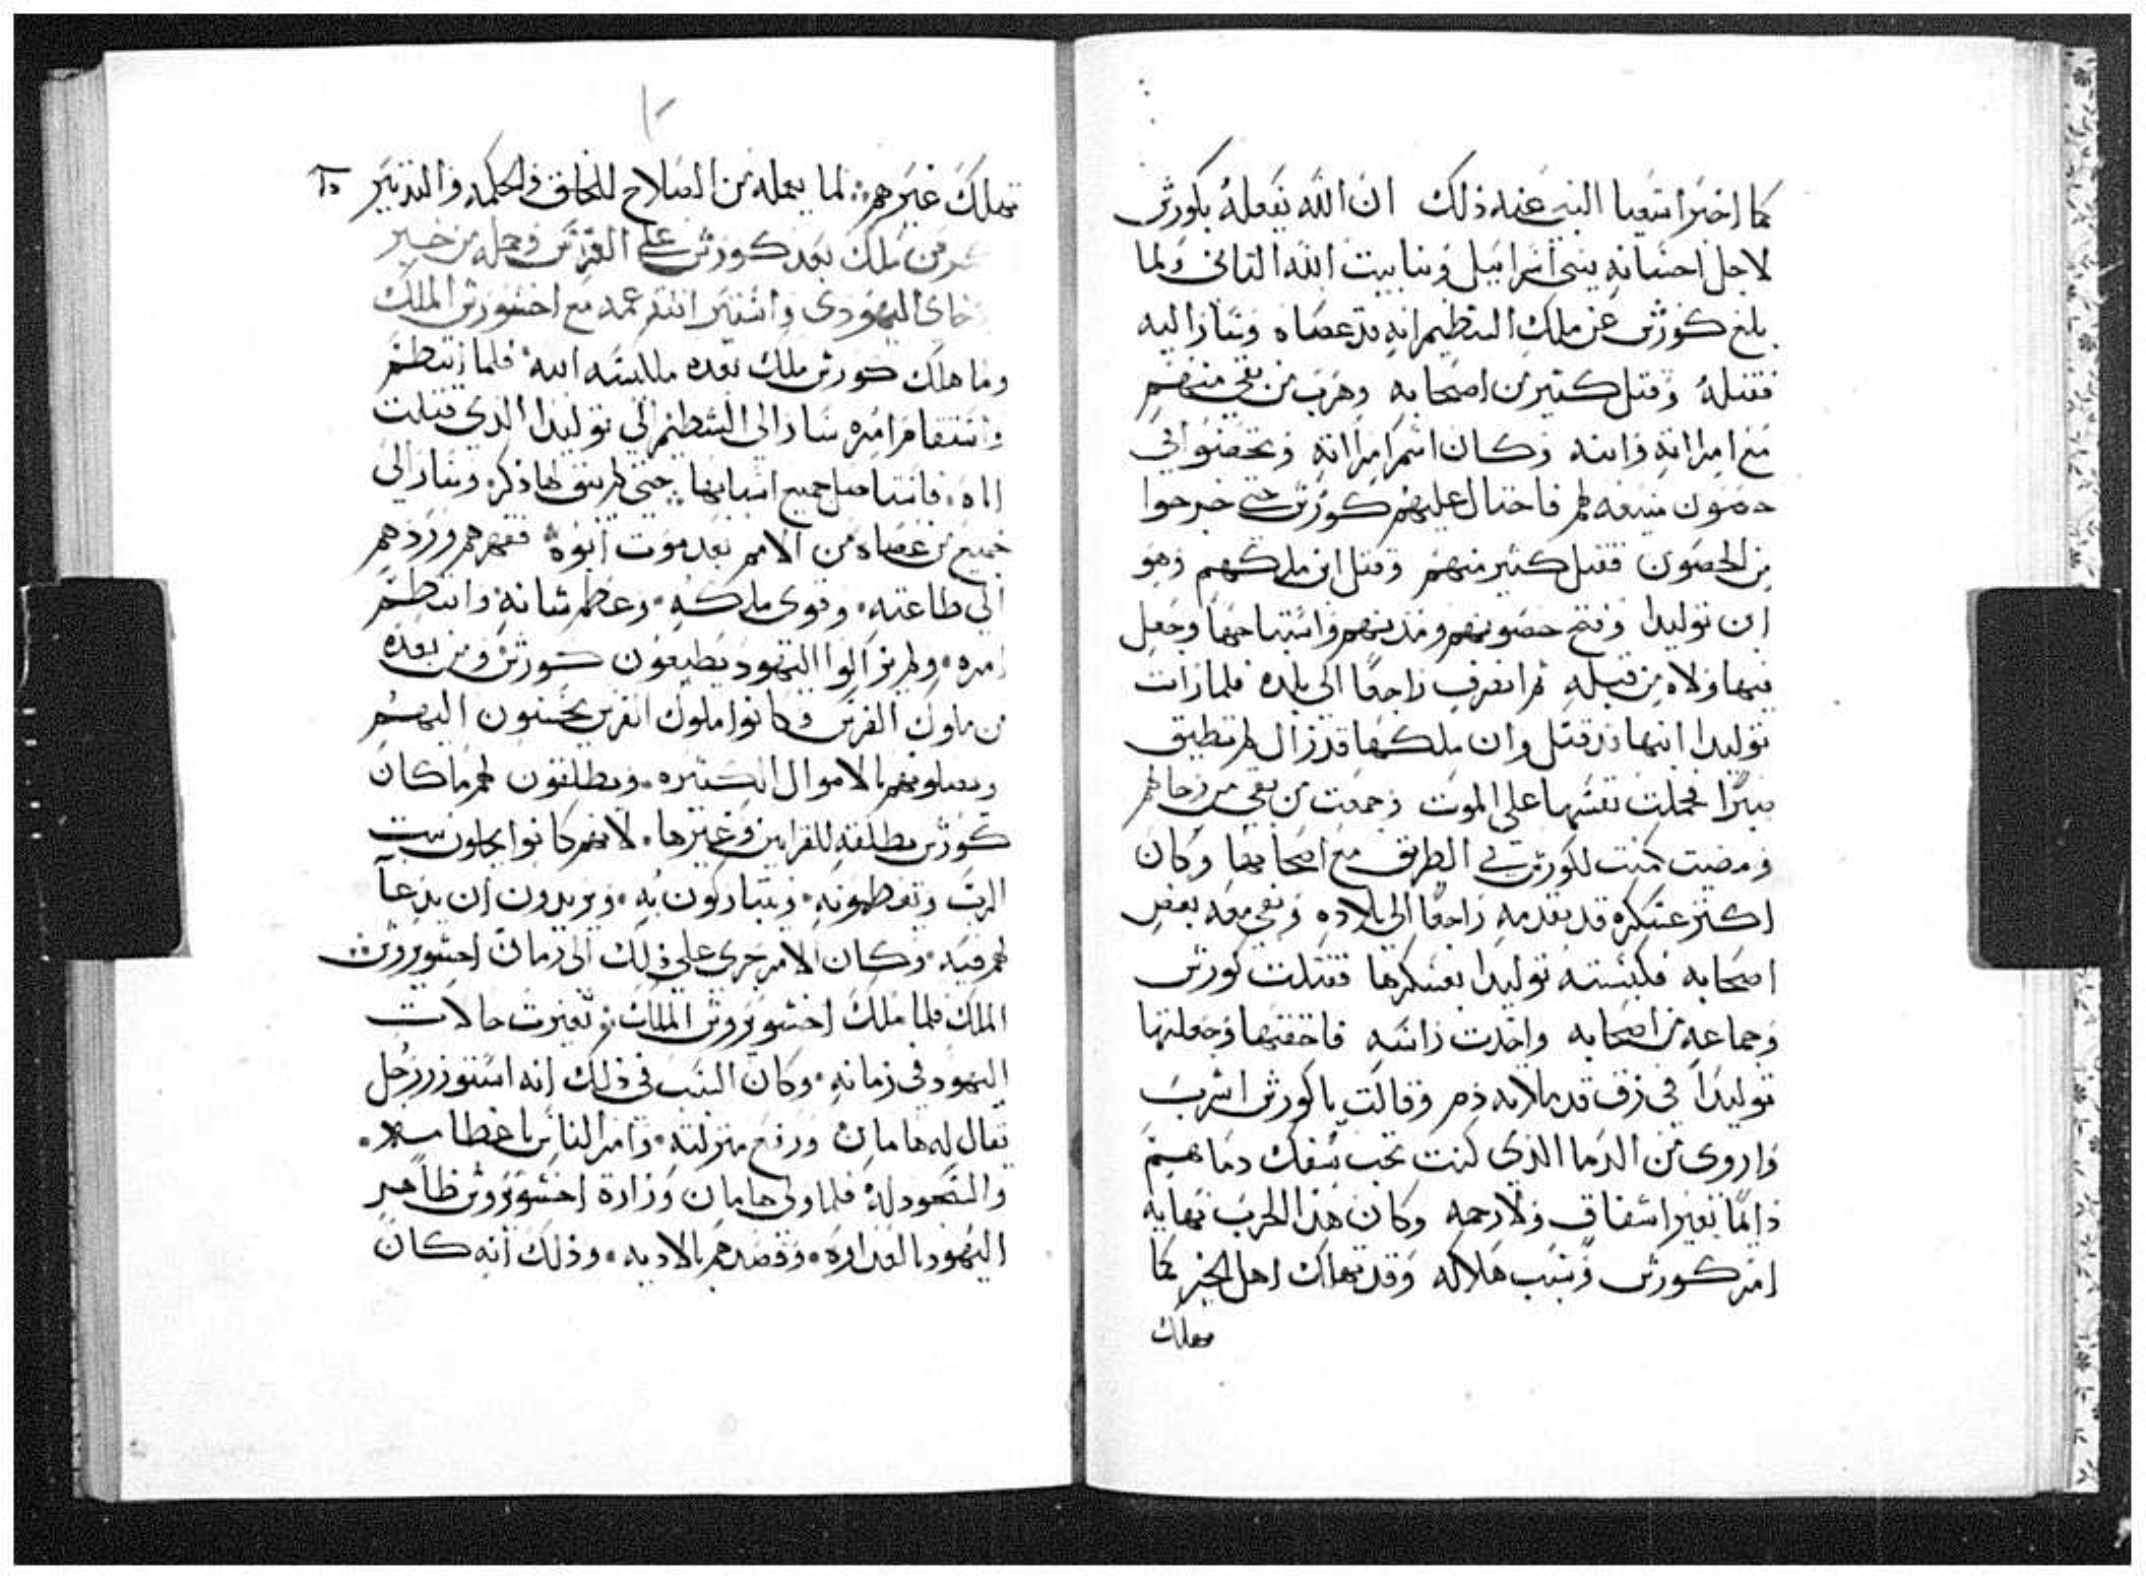 كما اخبر اشعيا النبي عنه ذلك ان الله يفعله بكورش
لاجل احسانه ببني اسرائيل وبنا بيت الله الثاني ولما
بلغ كورش عن ملك التطيم انه قد عصاه وسار اليه
فقتله وقتل كثير من اصحابه وهرب من بقي منهم
مع امراته وابنه وكان اسم امراته وتحصنوا في
حصون منيعه لهم فاحتال عليهم كورش حتى خرجوا
من الحصون فقتل كثير منهم وقتل ابن ملكهم وهو
ابن توليدا وفتح حصونهم ومدنهم واستباحها وجعل
فيها ولاه من قبله ثم انصرف راجعا الى بلده فلما رات
توليدا ابنها قد قتل وان ملكها قد زال لم تطيق
صبرا فحملت نفسها على الموت وجمعت من بقي من رجالهم
ومضيت كمنت لكورش في الطريق مع اصحابها وكان
اكثر عسكره قد تقدمه راجعا الى بلاده وبقي معه بعض
اصحابه فكبسته توليدا بعسكرها فقتلت كورش
وجماعه من اصحابه واخدت راسه فاخفتها وجعلتها
توليدا في زق قد ملاته دم وقالت يا كورش اشرب
واروى من الدما الذي كنت تحب سفك دماهم
دائما بغير اشفاق ولا رحمه وكان هذا الحرب نهاية
امر كورش وسبب هلاكه وقد تهلك اهل الخير كما
تهلك
تهلك غيرهم لما يعمله من الصلاح للخلق والحكمه والتدبير
من ملك بعد كورش على الفرس وجمله من خبر
اليهودي واستير ابنة عمه مع اخشورش الملك
وما هلك كورش ملك بعده فلما انتظم
واستقام امره سار الى الشطيم الى توليدا الذي قتلت
اباه فاستاصل جميع اسبابها حتى لم يبق لها ذكر وسار الى
جميع من عصاه من الامم بعد موت ابوه فقهرهم وردهم
الى طاعته وقوى ملكه وعظم شانه وانتظم
امره ولم يزالوا اليهود يطيعون كورش ومن بعده
من ملوك الفرس وكانوا ملوك الفرس يحسنون اليهم
ويصلونهم بالاموال الكثيره ويطلقون لهم ما كان
كورش يطلقه للقرابين وغيرها لانهم كانوا يجلون بيت
الرب ويعظمونه ويتباركون به ويريدون ان يدعا
لهم فيه وكان الامر جرى على ذلك الى زمان اخشويروش
الملك فلما ملك اخشويروش الملك تغيرت حالات
اليهود في زمانه وكان السبب في ذلك انه استوزر رجل
يقال له هامان ورفع منزلته وامر الناس باعظامه
والسجود له فلما ولي هامان وزارة اخشويروش ظاهر
اليهود بالعداوه وقصدهم بالاديه وذلك انه كان